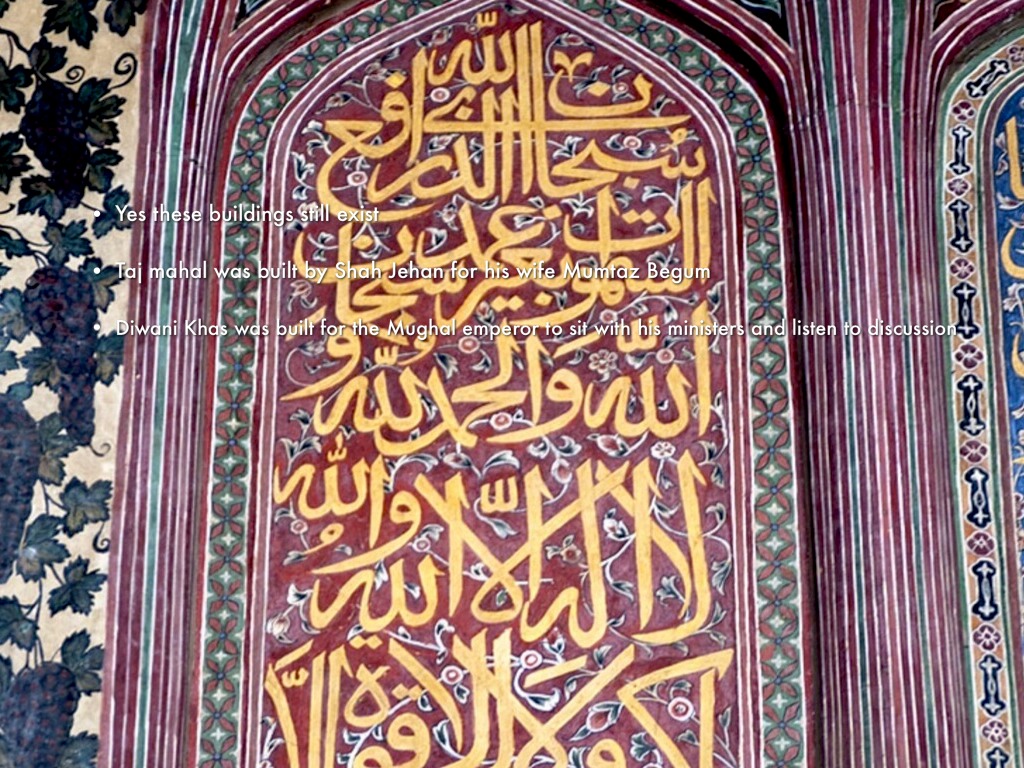 • Yes these buildings still exist
• Taj mahal was built by Shah Jehan for his wife Mumtaz Begum
• Diwani Khas was built for the Mughal emperor to sit with his ministers and listen to discussion
سبحان الذي رافع
السموات بغير عمد سبحان
الله والحمد لله و
لا اله الا الله والله
ولا قوة الا